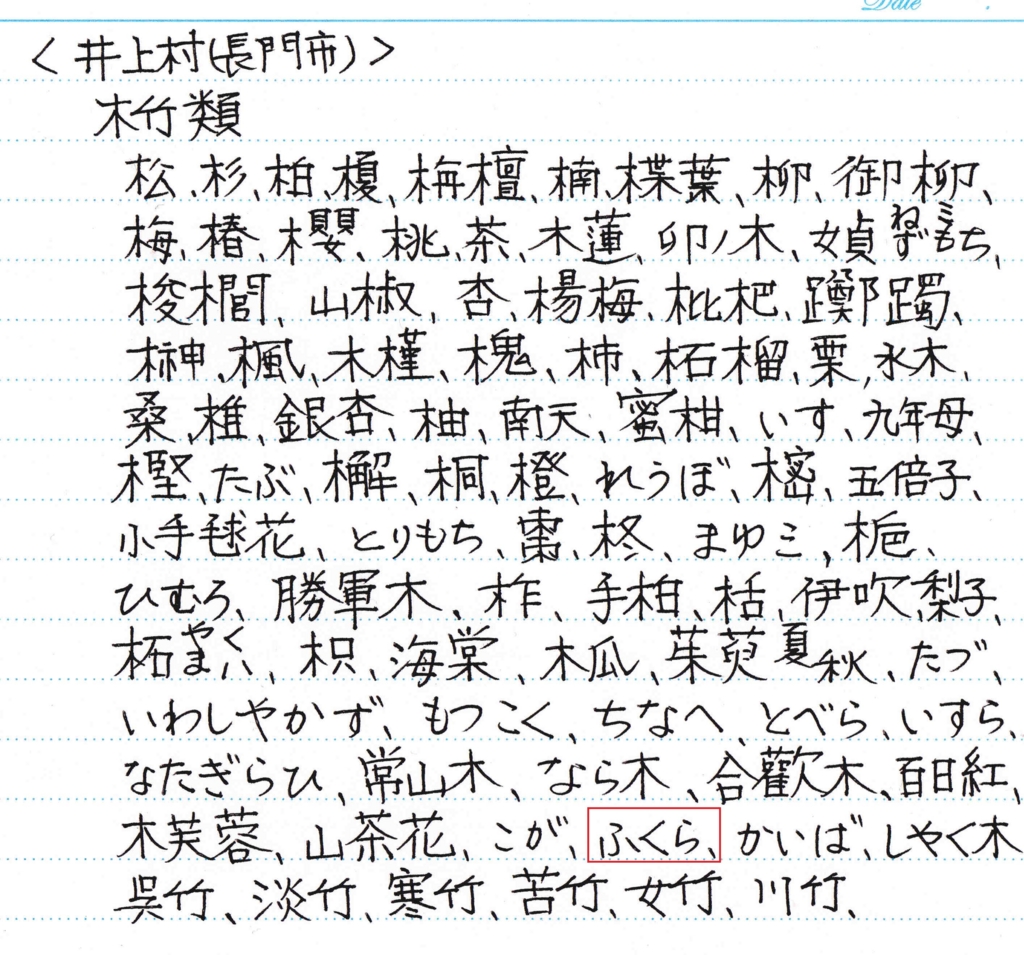 Date
<井上村(長門市)>
木竹類
松、杉、柏、榎、栴檀、楠、楪葉、柳、御柳、
梅、椿、櫻、桃、茶、木蓮、卯ノ木、女貞 ねず ミもち、
梭櫚、山椒、杏、楊梅、枇杷、躑躅、
榊、楓、木槿、槐、柿、柘榴、栗、水木、
桑、椎、銀杏、柚、南天、蜜柑、いす、九年母、
樫、たぶ、檞、桐、橙、れうぼ、樒、五倍子、
小手毬花、とりもち、棗、柊、まゆミ、梔、
ひむろ、勝軍木、柞、手柑、栝、伊吹、梨子、
柘 やまくハ、枳、海棠、木瓜、茱萸 夏秋、たづ、
いわしやかず、もつこく、ちなへ、とべら、いすら、
なたぎらひ、常山木、なら木、合歡木、百日紅、
木芙蓉、山茶花、こが、ふくら、かいば、しやく木
呉竹、淡竹、寒竹、苦竹、女竹、川竹、